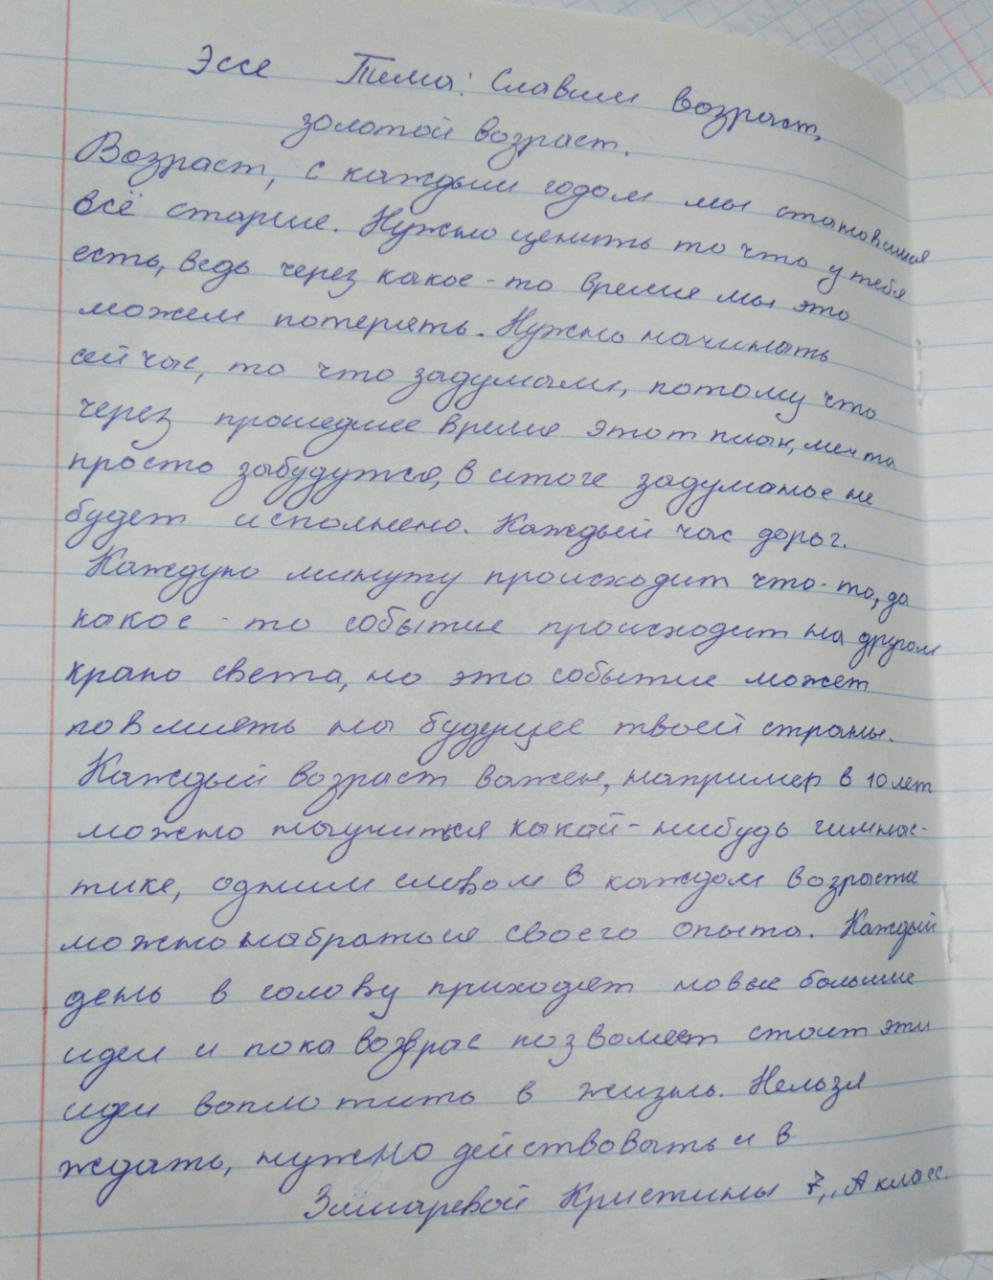 Эссе Тема: Славим возраст,
золотой возраст.
Возраст, с каждым годом мы становимся
всё старше. Нужно ценить то что у тебя
есть, ведь через какое-то время мы это
можем потерять. Нужно начинать
сейчас, то что задумали, потому что
через прошедшее время этот план, мечта
просто забудутся, в итоге задуманое не
будет исполнено. Каждый час дорог.
Каждую минуту происходит что-то, да
какое-то событие происходит на другом
краю света, но это событие может
повлиять на будущее твоей страны.
Каждый возраст важен, например в 10 лет
можно научиться какой-нибудь гимнас-
тике, одним словом в каждом возрасте
можно набраться своего опыта. Каждый
день в голову приходят новые большие
идеи и пока возврас позволяет стоит эти
идеи воплотить в жизнь. Нельзя
ждать, нужно действовать и в
Криситины 7 „А класс.